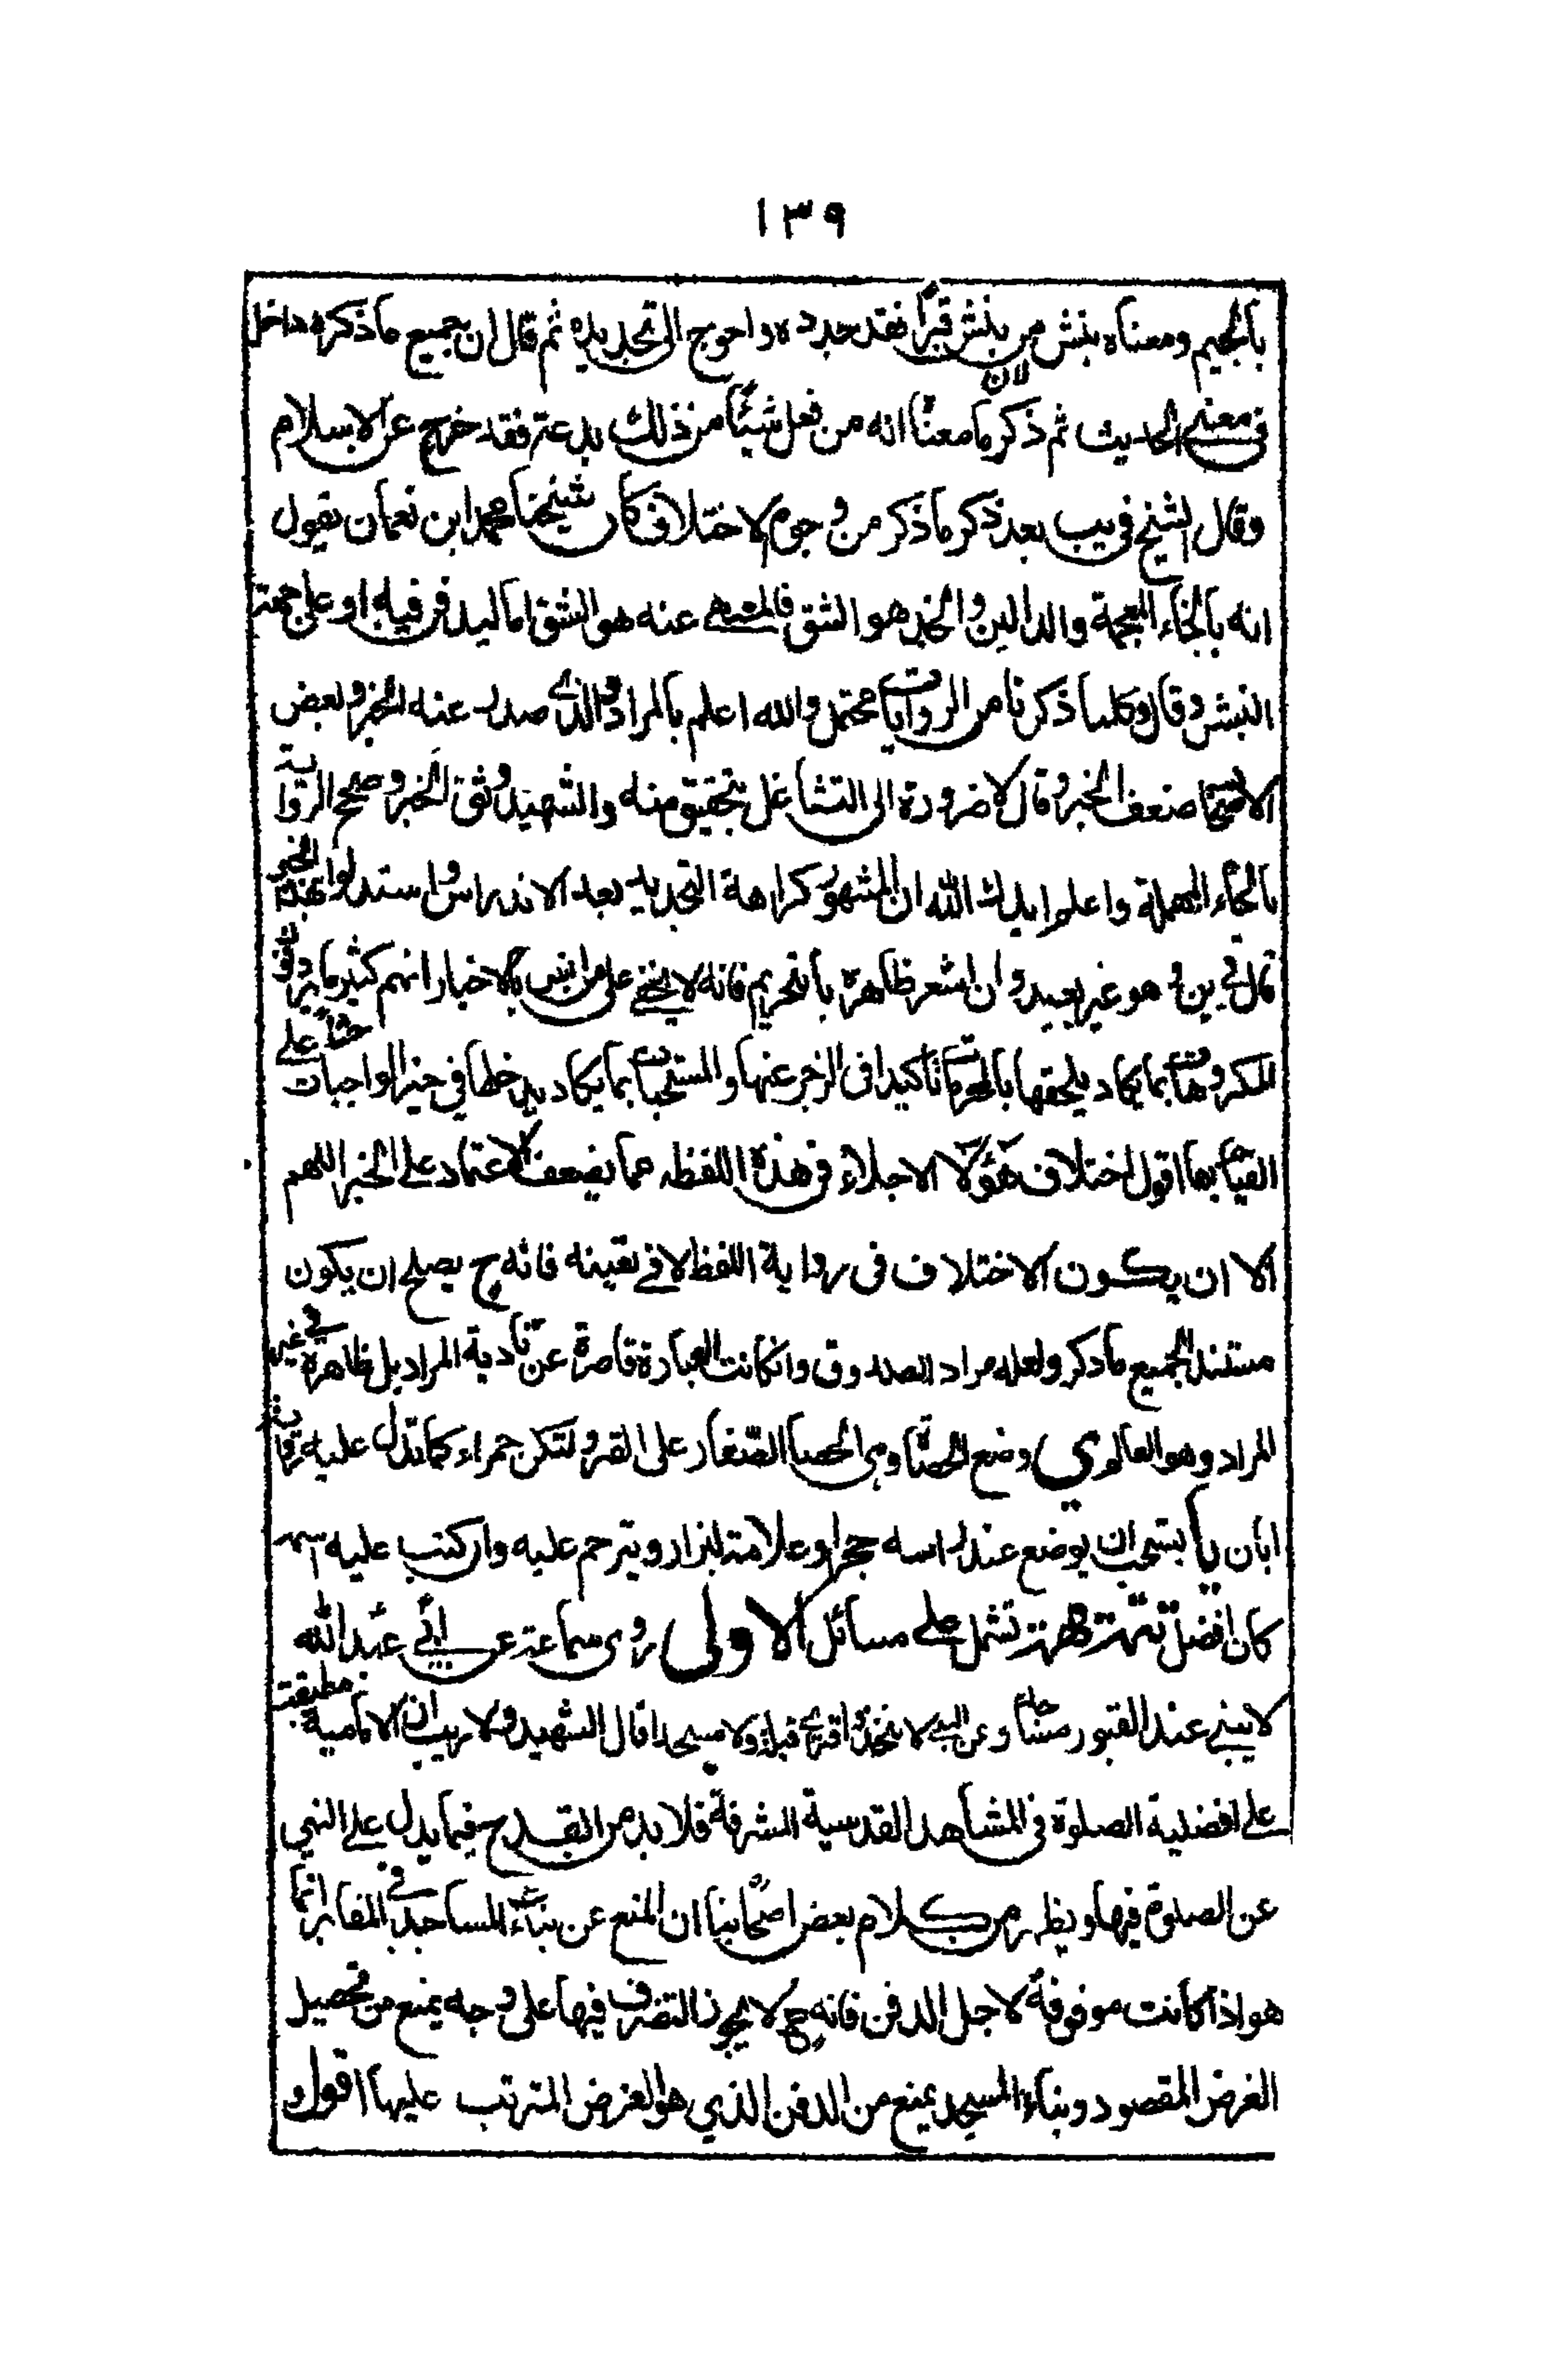 ١٣٩
بالجيم ومعناه بنبش من ينبش قبرا فقد جدده واحوج الى تجديده ثم قال ان جميع ما ذكره داخل
في معنى الحديث ثم ذكر ما معناه لان انه من فعل شيئا من ذلك بدعة فقد خرج عن الاسلام
وقال الشيخ في يب بعد ذكر ما ذكر من وجوه الاختلاف كان شيخنا محمد ابن نعمان يقول
انه بالخاء المعجمة والدالين والخد هو الشق فالمنهى عنه هو الشق اما ليدفن فيه او على جهة
النبش وقال وكلما ذكرنا من الروايات محتمل والله اعلم بالمراد والذي صدر عنه الخبر وبعض
الاصحاب ضعف الخبر وقال لا ضرورة الى التشاغل بتحقيق متنه والشهيد وثق الخبر وصحح الرواية
بالحاء المهملة واعلم ايدك الله ان المشهور كراهة التجديد بعد الاندراس واستدلوا بهذا الخبر
قال في ين وهو غير بعيد وان اشعر ظاهره بالتحريم فانه لا يخفى على من انس بالاخبار انهم كثير ما يردفون
المكروهات بما يكاد يلحقها بالمحرمات تاكيدا في الزجر عنها والمستحبات بما يكاد يدخلها في حيز الواجبات حثا على
القيام بها اقول اختلاف هؤلاء الاجلاء في هذه اللفظه مما يضعف الاعتماد على الخبر اللهم
الا ان يكون الاختلاف في رواية اللفظ لا في تعيينه فانه ح يصلح ان يكون
مستند الجميع ما ذكر ولعله مراد الصدوق وان كانت العبارة قاصرة عن تادية المراد بل ظاهره في غير
المراد وهو العالم وضع الحصباء وهي الحصا الصغار على القبر ولتكن حمراء كما تدل عليه رواية
ابان يا يستحب ان يوضع عند راسه حجر او علامة ليزار ويترحم عليه وان كتب عليه اسمه
كان افضل تتمة مهمة تشمل على مسائل الاولى روى سماعة عن ابي عبد الله
لا يبنى عند القبور مساجد وعن النبي لا تتخذوا قبري قبلة ولا مسجدا قال الشهيد ولا ريب ان الامامية مطبقة
على افضلية الصلوة في المشاهد القدسية المشرفة فلا بد من القدح فيما يدل على النهي
عن الصلوة فيها ويظهر من كلام بعض اصحابنا ان المنع عن بناء المساجد في المقابر انما
هو اذا كانت موقوفة لاجل الدفن فانه ح لا يجوز التصرف فيها على وجه يمنع من تحصيل
الغرض المقصود وبناء المسجد يمنع من الدفن الذي هو الغرض المترتب عليها اقول و